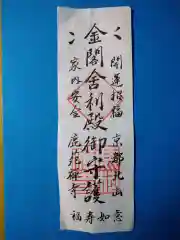 開運招福
京都北山
金閣舎利殿御守護
家内安全
鹿苑禅寺
如意
寿福